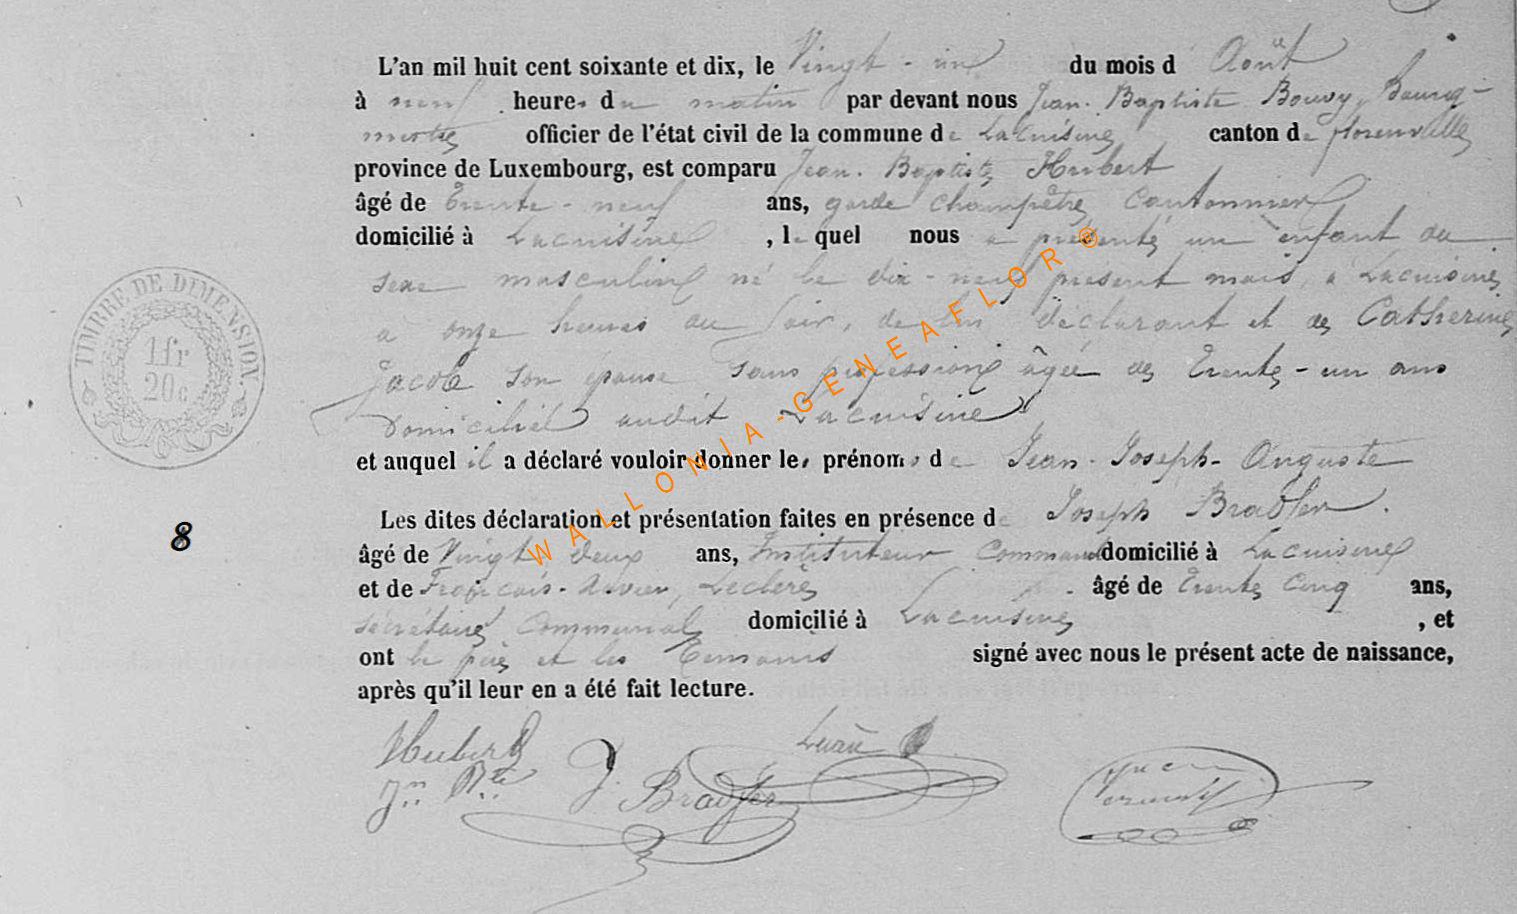 L'an mil huit cent soixante et dix, le Vingt-un du mois d Août
à neuf heures du matin par devant nous Jean-Baptiste Bouvy, Bourg-
mestre officier de l'état civil de la commune de Lacuisine canton de florenville
province de Luxembourg, est comparu Jean-Baptiste Hubert
âgé de Trente-neuf ans, garde champêtre Cantonnier
domicilié à Lacuisine, lequel nous a présenté un enfant du
sexe masculin né le dix-neuf présent mois, à Lacuisine
à onze heures du soir, de lui déclarant et de Catherine
Jacob son épouse sans profession âgée de Trente-un ans
domiciliée audit Lacuisine
et auquel il a déclaré vouloir donner les prénoms de Jean-Joseph-Auguste
Les dites déclaration et présentation faites en présence de Joseph
âgé de Vingt deux ans, Instituteur Communal domicilié à Lacuisine
et de François- Leclere âgé de Trente Cinq ans,
secrétaire Communal domicilié à Lacuisine, et
ont le père et les Temoins signé avec nous le présent acte de naissance,
après qu'il leur en a été fait lecture.
TIMBRE DE DIMENSION.
1fr
20c
8
WALLONIA-GENEAFLOR®
Hubert
Jn Bte
J.